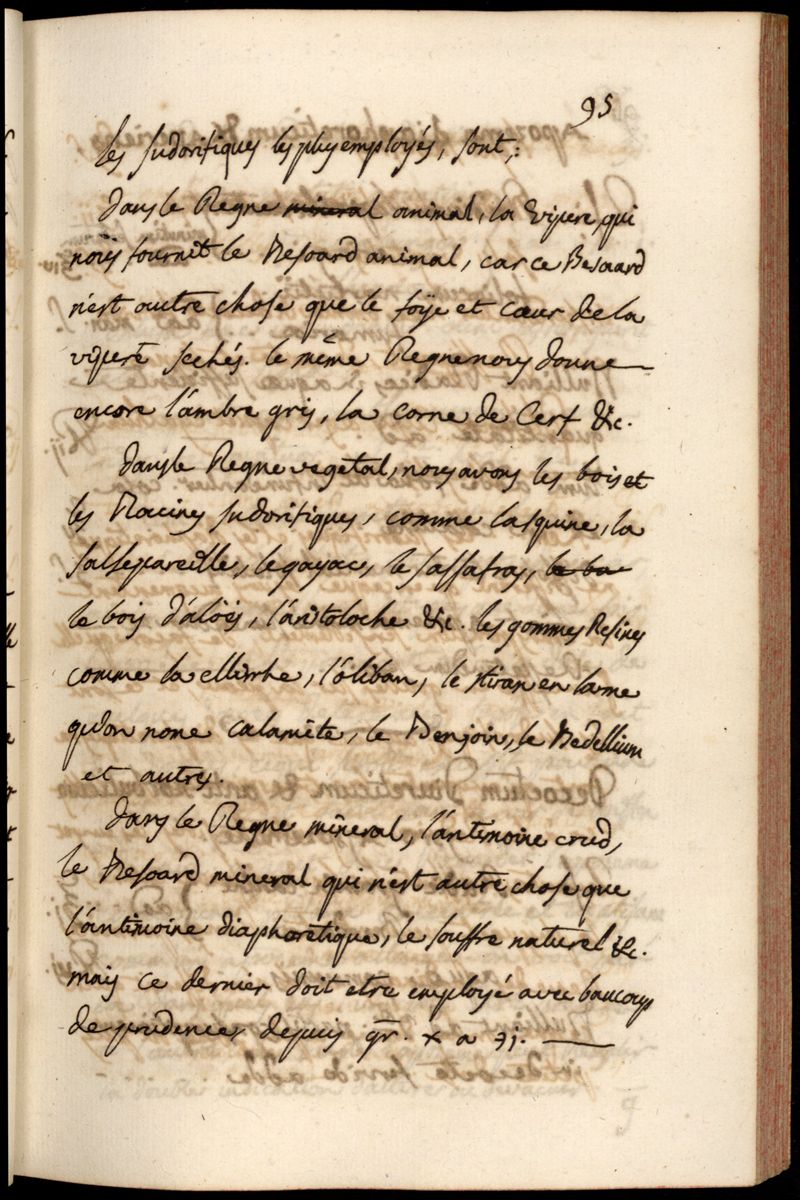 95
les sudorifiques les plus employés, sont,:
dans le Regne mineral animal, la vipere, qui
nous fournit le Besoard animal, car ce Besoard
n'est autre chose que le foÿe et cœur de la
vipere sechés. le même Regne nous donne
encore l'ambre gris, la corne de Cerf &c.
dans le Regne vegetal, nous avons les bois et
les Racines sudorifiques, comme lasquine, la
salsepareille, le gayac, le sassafras, le ba
le bois d'aloës, l'aristoloche &c. les gommes Resines
comme la Mirrhe, l'oliban, le stirax en larme
qu'on nome calamite, le Benjoin, le Bedellium
et autres.
dans le Regne mineral, l'antimoine crud,
le Besoard mineral qui n'est autre chose que
l'antimoine diaphoretique, le souffre naturel &c.
mais ce dernier doit etre employé avec baucoup
de prudence, depuis gr. x a ℈j.